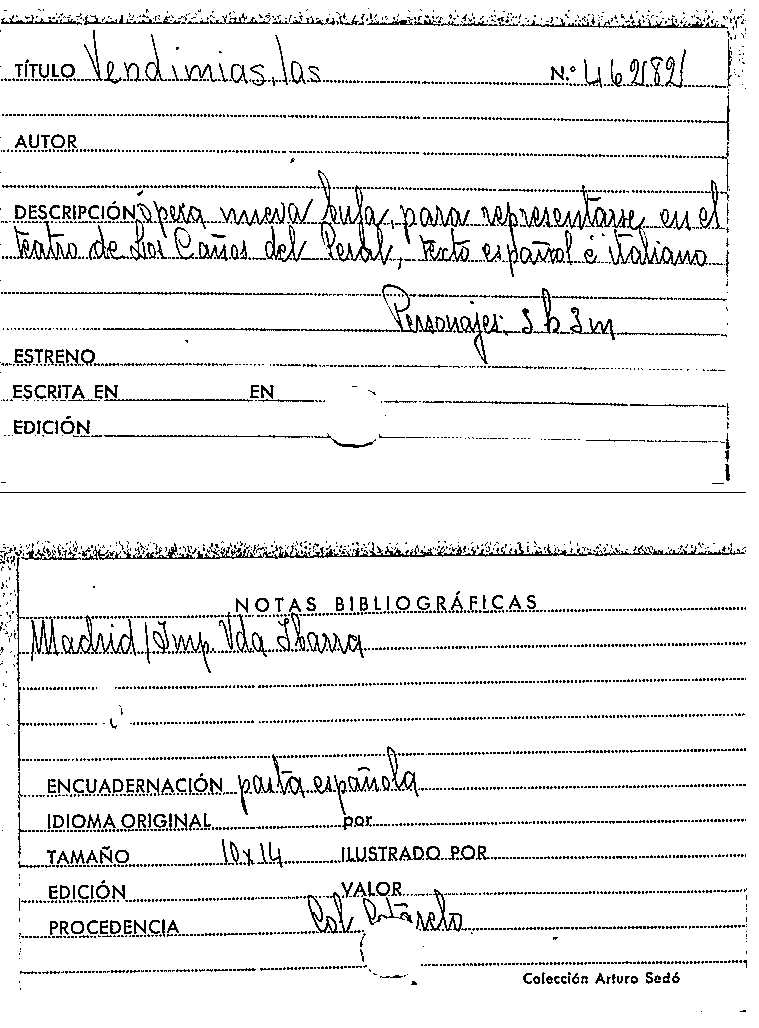 TÍTULO Vendimias, las N.º 46282
AUTOR
DESCRIPCIÓN Opera nueva bufa, para representarse en el
teatro de Los Caños del Peral, texto español é italiano
Personajes: 3 h 3 m
ESTRENO
ESCRITA EN EN
EDICIÓN
NOTAS BIBLIOGRÁFICAS
Madrid / Imp. Vda Ibarra
ENCUADERNACIÓN pasta española
IDIOMA ORIGINAL por
TAMAÑO 10x14 ILUSTRADO POR
EDICIÓN VALOR
PROCEDENCIA Col Cotarelo
Colección Arturo Sedó